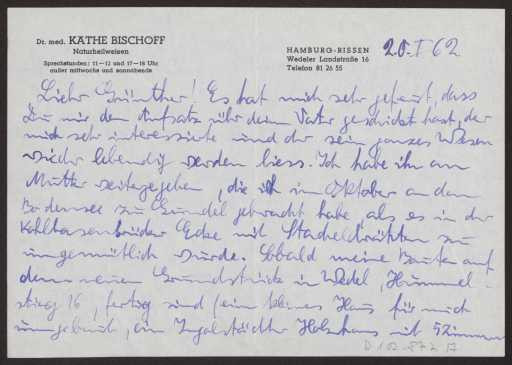 Dr. med. KÄTHE BISCHOFF
Naturheilweisen
Sprechstunden: 11–12 und 17–18 Uhr
außer mittwochs und sonnabends
HAMBURG-RISSEN
Wedeler Landstraße 16
Telefon 81 26 55
20. I 62
Lieber Günther! Es hat mich sehr gefreut, dass
Du mir den Aufsatz über deinen Vater geschickt hast, der
mich sehr interessierte und der sein ganzes Wesen
wieder lebendig werden liess. Ich habe ihn an
Mutter weitergegeben, die ich im Oktober an den
Bodensee zu Gundel gebracht habe, als es in der
Ecke mit Stacheldrähten zu
ungemütlich wurde. Sobald meine Bauten auf
dem neuen Grundstück in Wedel, Himmel-
stieg 16, fertig sind (ein kleines Haus für mich
umgebaut, ein Ingolstädter Holzhaus mit 5 Zimmern
D 102